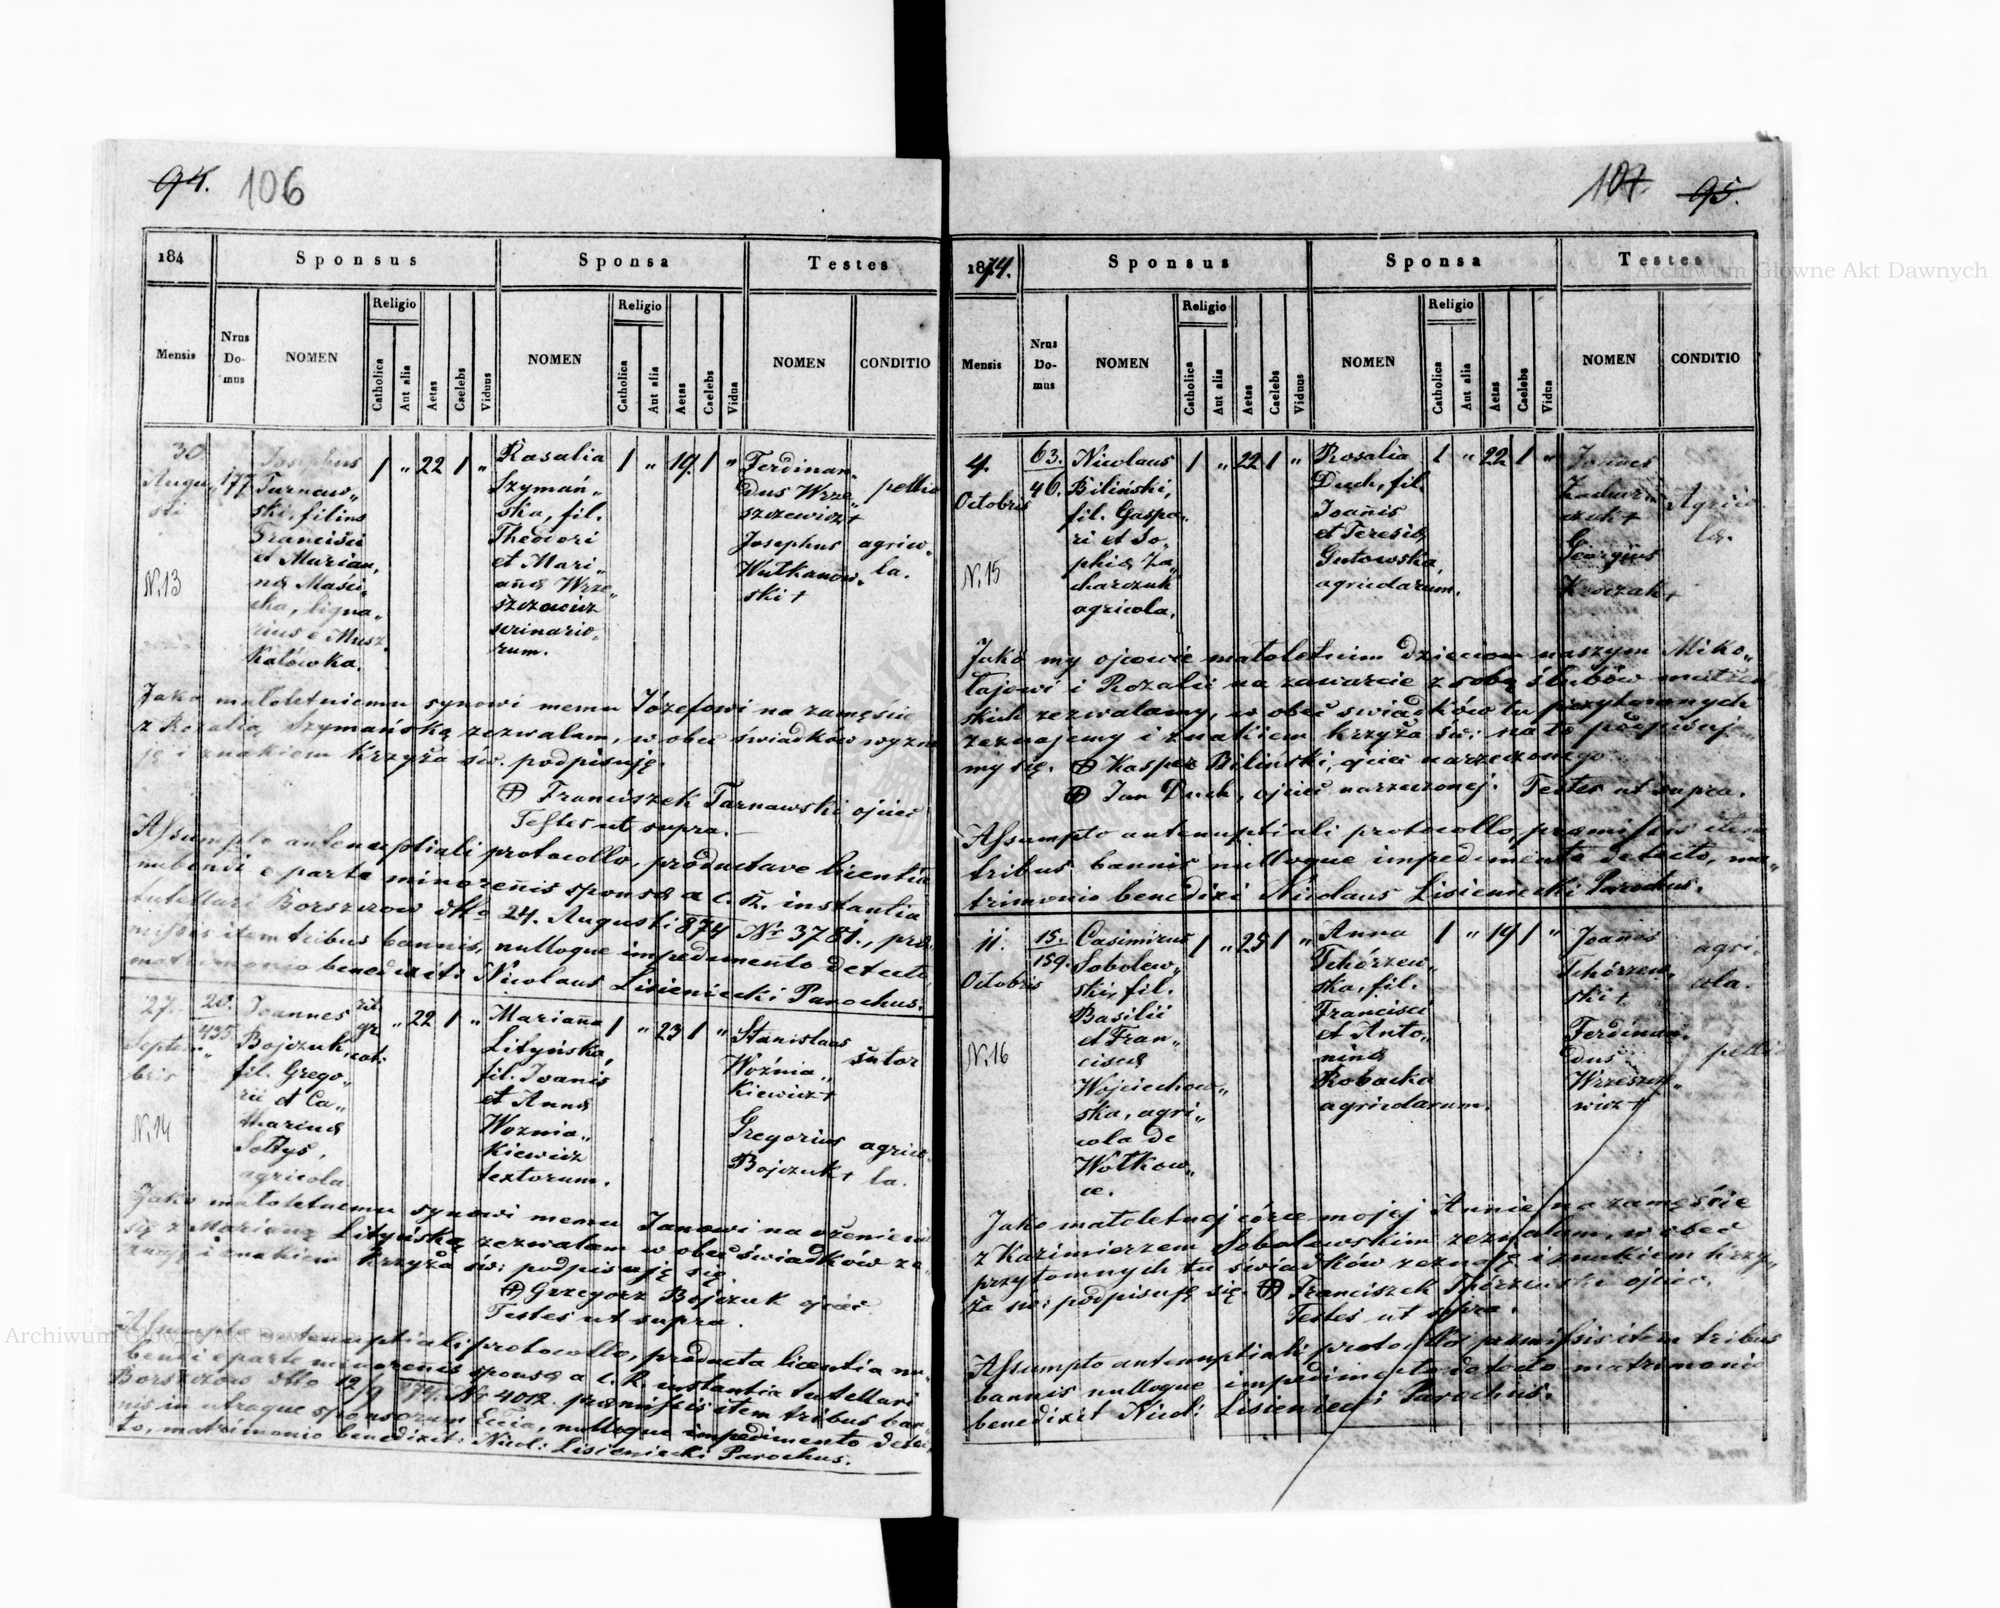 94. 106
184
Sponsus
Sponsa
Testes
Mensis
Nrus Do- mus
NOMEN
Religio
Catholica
Aut alia
Aetas
Caelebs
Viduus
NOMEN
Religio
Catholica
Aut alia
Aetas
Caelebs
Vidua
NOMEN
CONDITIO
30
Augu„
sti
N. 13
177
Josephus
Tarnaw„
ski, filius
Francisci
et Marian,
næ Maści„
cha, ligna„
rius e Musz„
Katówka.
1 „ 22 1 „
Rosalia
Szymań„
ska, fil.
Theodori
et Mari„
añæ Wrze„
szczewicz
scrinario„
rum.
1 „ 19 1 „
Ferdinan„
dus Wrze„
szczewicz +
pellio
Josephus
Wutkanow„
ski +
agrico„
la.
Jako małoletniemu synowi memu Józefowi na zamęście
z Rozalią Szymańską zezwalam, w obec świadków wyzna
ję i znakiem Krzyża św. podpisuję.
⊕ Franciszek Tarnawski ojciec
Testes ut supra.
Assumpto antenuptiali protocollo, productave licentia
nubendi e parte minoreñis sponsæ a c. R. instantia
tutellari Borszczow dto 24. Augusti 874 Nr 3781., præ„
missis item tribus bannis, nulloque impedimento detecto,
matrimonio benedixit: Nicolaus Lisieniecki Parochus.
27.
Septem„
bris
N. 14
20.
435
Joannes
Bojczuk,
fil. Grego„
rii et Ca„
tharinæ
Sołtys,
agricola
rit.
gr.
cat.
„ 22 1 „
Mariaña
Lityńska,
fil. Joanis
et Annæ
Woznia„
kiewicz
textorum.
1 „ 23 1 „
Stanislaus
Woźnia„
kiewicz +
sutor
Gregorius
Bojczuk +
agrico„
la.
Jako małoletnemu synowi memu Janowi na ożenienie
się z Marianną Lityńską zezwalam w obec świadków ze„
znaję i znakiem Krzyża św: podpisuję się.
⊕ Grzegorz Bojczuk ojciec
Testes ut supra.
Assumpto antenuptiali protocollo, producta licentia nu„
bendi e parte minorenis sponsæ a c. R. instantia tutellari
Borszczow dto 12/9 874. Nr 4012. præmissis item tribus ban„
nis in utraque sponsorum Eccia, nulloque impedimento detec„
to, matrimonio benedixit: Nicol: Lisieniecki Parochus.
107. 95.
1874.
Sponsus
Sponsa
Testes
Mensis
Nrus Do- mus
NOMEN
Religio
Catholica
Aut alia
Aetas
Caelebs
Viduus
NOMEN
Religio
Catholica
Aut alia
Aetas
Caelebs
Vidua
NOMEN
CONDITIO
4.
Octobris
N. 15
63.
46.
Nicolaus
Biliński,
fil. Gaspa„
ri et So„
phiæ Za„
charczuk
agricola.
1 „ 22 1 „
Rosalia
Duch, fil.
Joañis
et Teresiæ
Gutowska,
agricolarum.
1 „ 22 1 „
Joañes
Zachar„
czuk +
Georgius
Krawczuk +
Agrico„
la.
Jako my ojcowie małoletnim dzieciom naszym Miko„
łajowi i Rozalii na zawarcie z sobą ślubów małżeń„
skich zezwalamy, w obec swiadków tu przytomnych
zeznajemy i znakiem krzyża św: na to podpisuje„
my się. ⊕ Kasper Biliński, ojciec narzeczonego
⊕ Jan Duch, ojciec narzeczonej. Testes ut supra.
Assumpto antenuptiali protocollo, præmissis item
tribus bannis nulloque impedimento detecto, ma„
trimonio benedixi Nicolaus Lisieniecki Parochus.
11.
Octobris
N. 16
15.
159.
Casimirus
Sobolew„
ski, fil.
Basilii
et Fran„
ciscæ
Wojciechow„
ska, agri„
cola de
Wołkow„
ce.
1 „ 25 1 „
Anna
Tchórzew„
ska, fil.
Francisci
et Anto„
ninæ
Robacka
agricolarum.
1 „ 19 1 „
Joañes
Tchórzew„
ski +
agri„
cola.
Ferdinan„
dus
Wrzeszcze„
wicz +
pellio
Jako małoletnej córce mojej Annie na zamęście
z Kazimierzem Sobolewskim zezwalam, w obec
przytomnych tu świadków zeznaję i znakiem krzy„
ża św: podpisuję się. ⊕ Franciszek Thórzewski ojciec.
Testes ut supra.
Assumpto antenuptiali protocollo præmissis item tribus
bannis nulloque impedimento detecto matrimonio
benedixit Nicol: Lisieniecki Parochus.
Archiwum Główne Akt Dawnych
Archiwum Główne Akt Dawnych